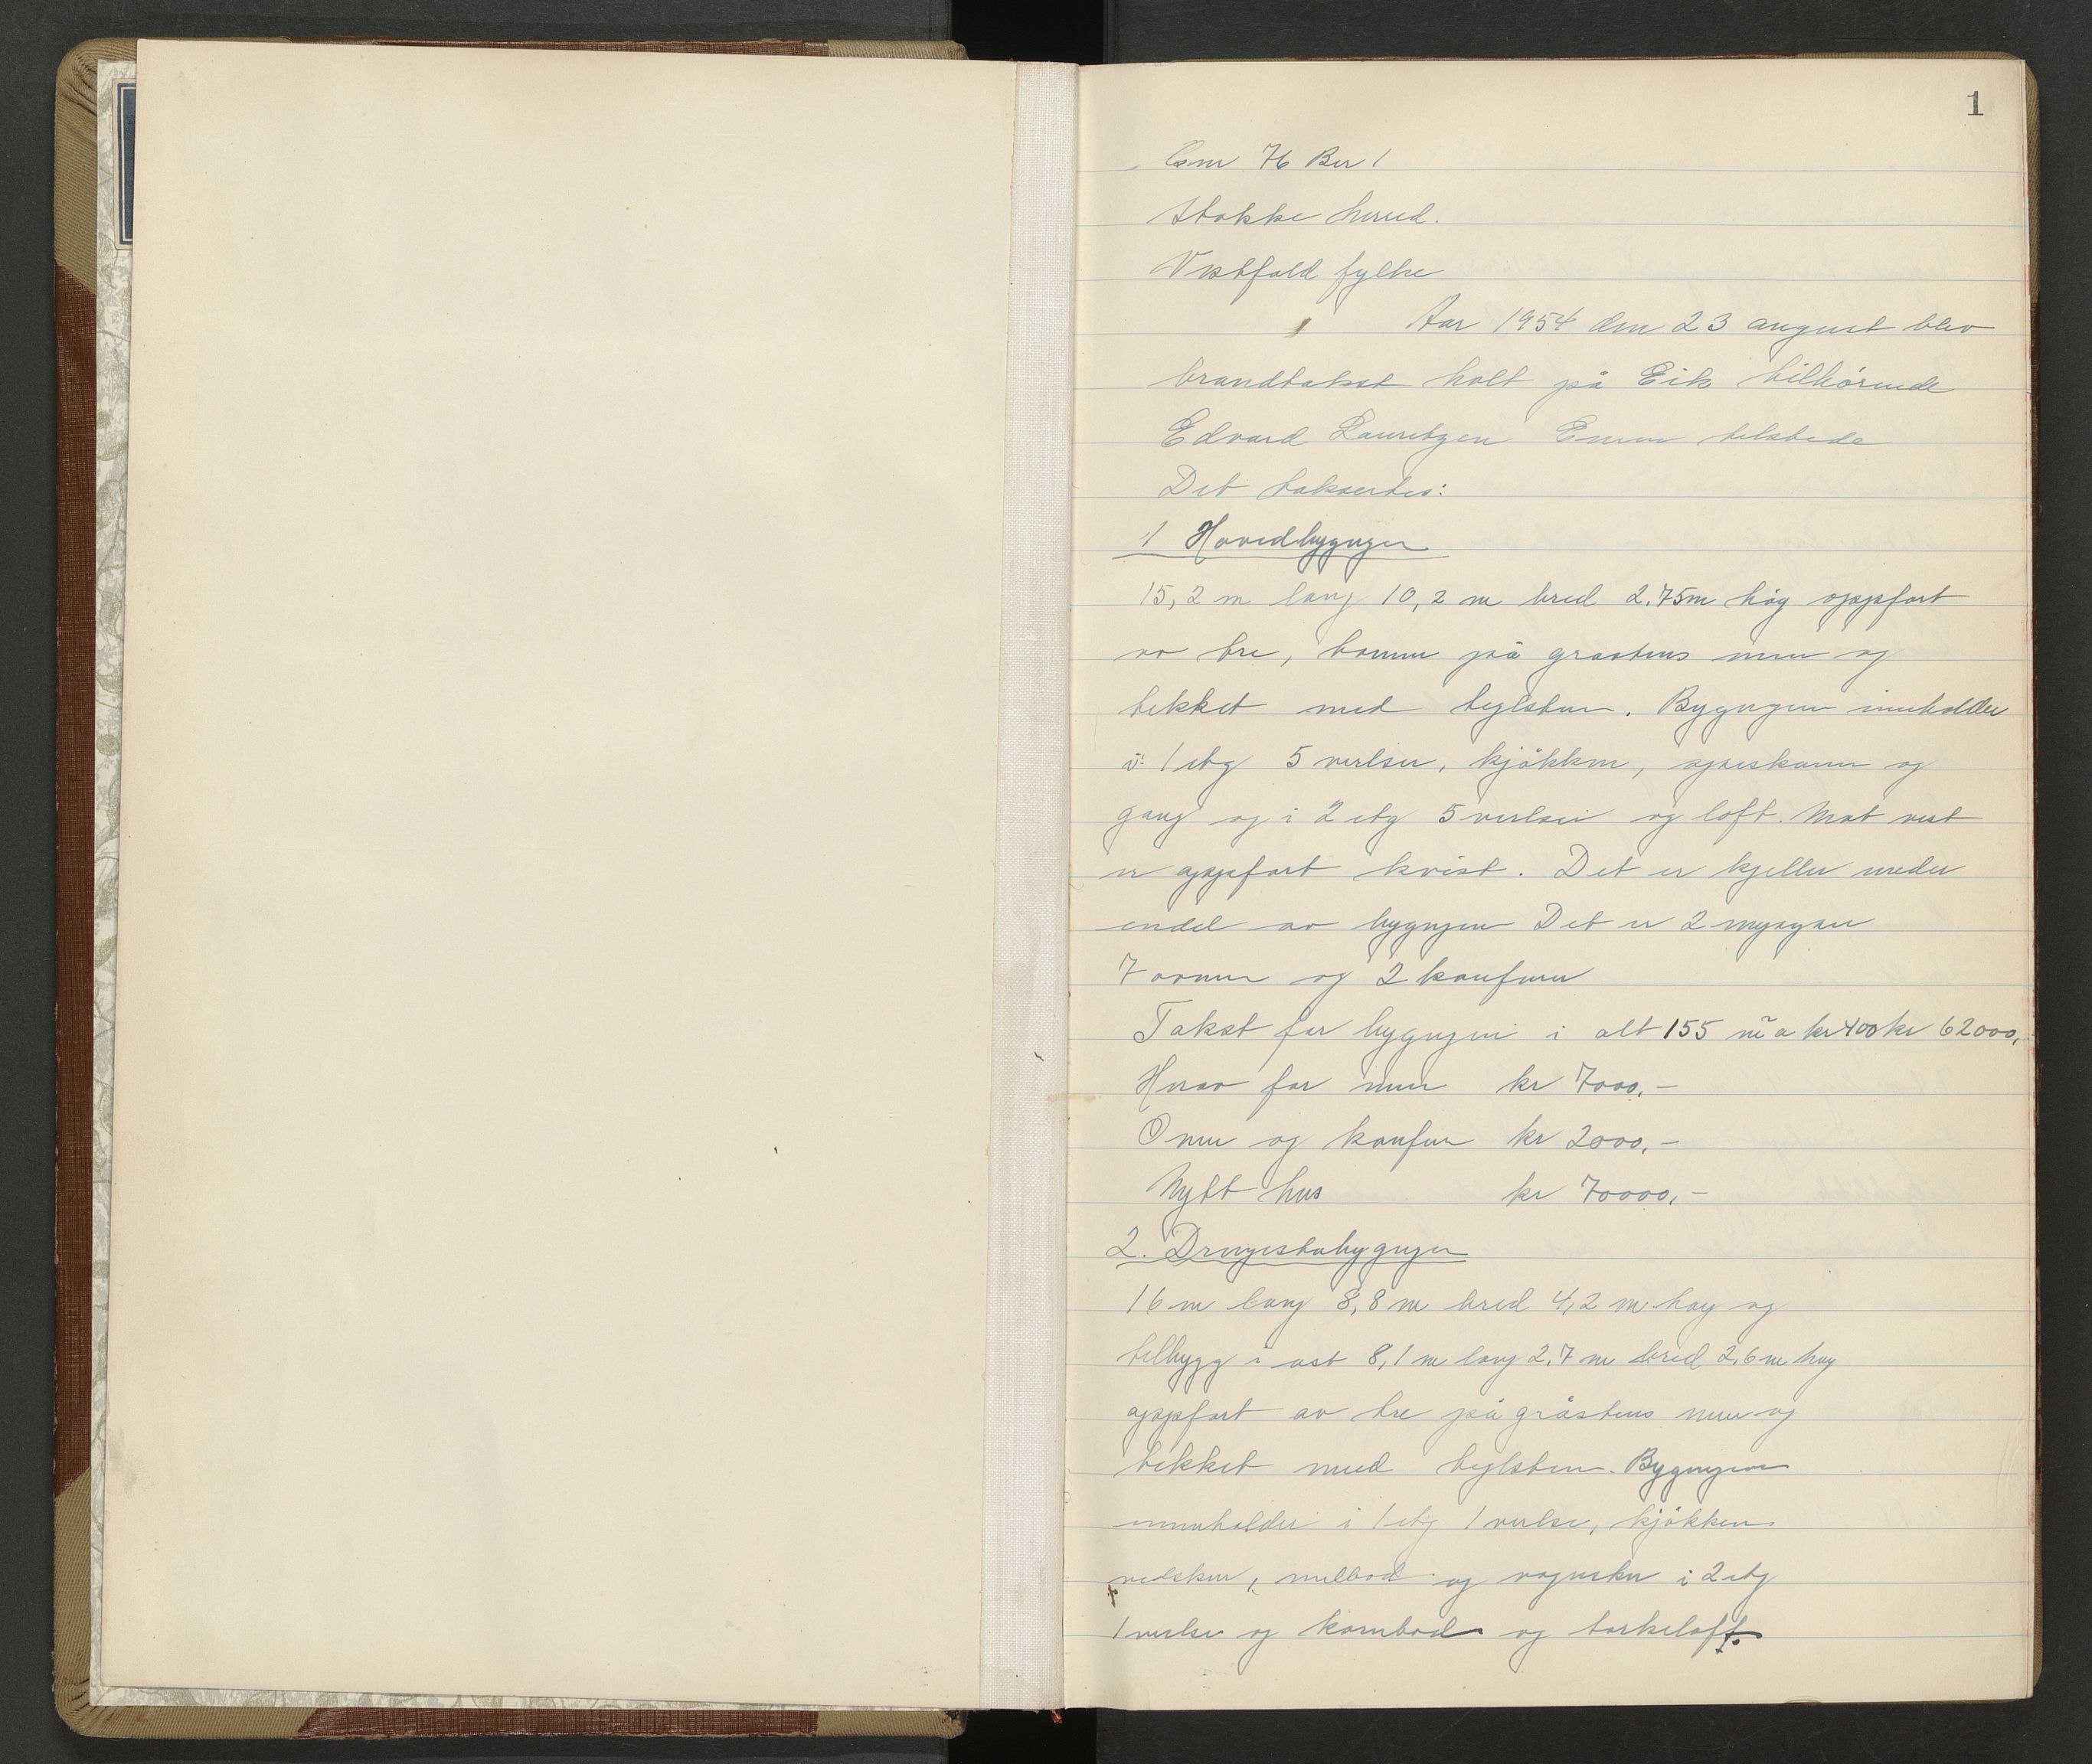 1
Gnr 76 Bnr 1
Stokke herred.
Vestfold fylke
Aar 1954 den 23 august blev
brandtakst holt på Eik tilhörende
Edvard Lauritzen Eieren tilstede
Det takseertes:
1 Hovedbygngen
15,2 m lang 10,2 m bred 2.75m høg oppfort
av tre, tomm på graastens mur og
tekket med teglsten. Bygngen inneholder
i: 1 etg 5 verlser, kjökken, speiskamr og
gang og i 2 etg 5 verlser og loft. Mot vest
er oppfort kvist. Det er kjeller under
endel av bygngen Det er 2 
7 ovner og 2 komfurer
Takst for bygngen i alt 155 m² a kr 400 kr 62000,
Herav for mur kr 7000.-
Ovner og komfur kr 2000.-
Nytt hus kr 70000,-
2. Drengestubygngen
16 m lang 8,8 m bred 4,2 m. høy og
tilbygg i ost 8,1 m lang 2,7 m bred 2,6 m høy
oppfort av tre på gråstens mur og
tekket med teglsten. Bygngen
inneholder i 1 etg 1 verlse, kjökken
vedskur, melbod og vognskur i 2 etg
1 verlse og kornbod og torkeloft.